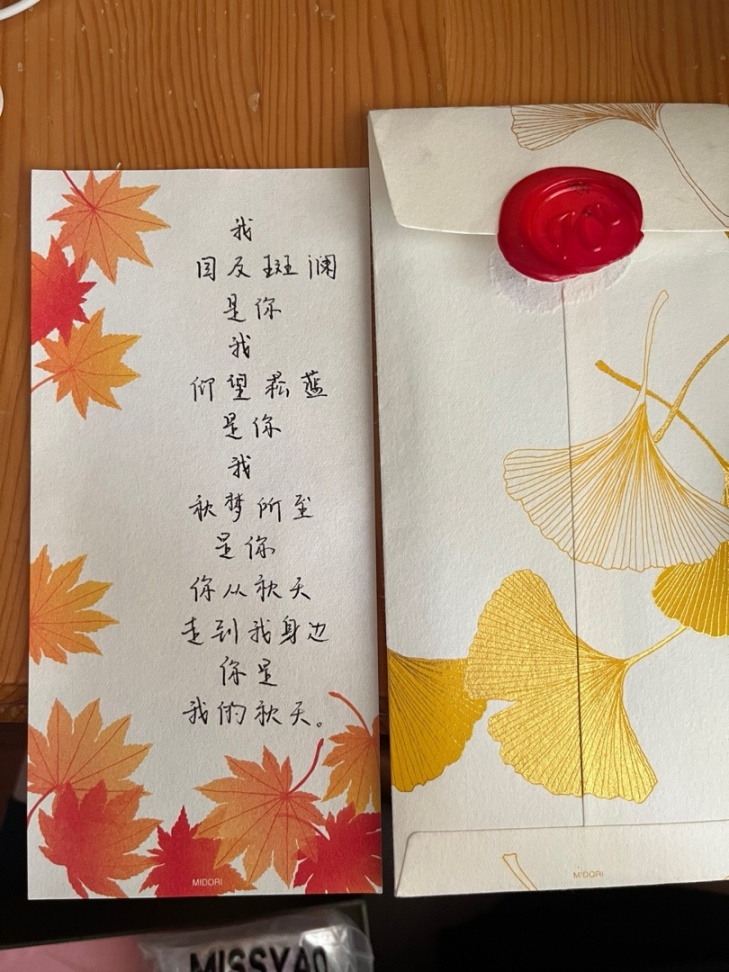 我
目及斑澜
是你
我
仰望菘蓝
是你
我
秋梦所至
是你
你从秋天
走到我身边
你是
我的秋天。
MIDORI
MIDORI
MISSYAO